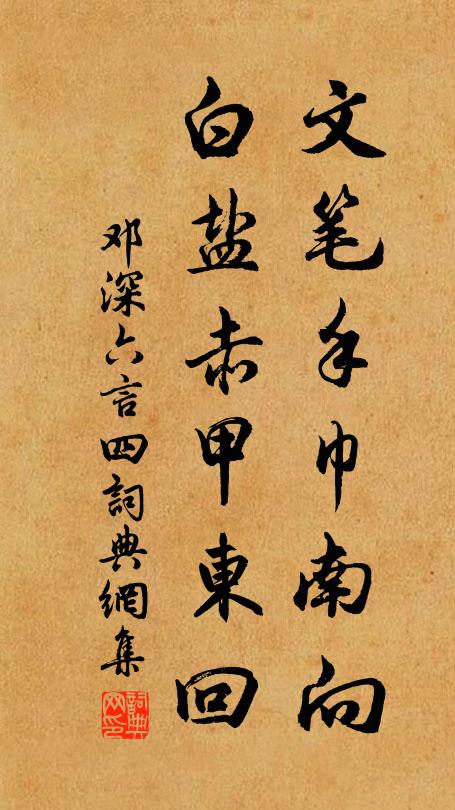 文笔手巾南向
白盐赤甲東回
邓深六言四詞典網集
詞典網印